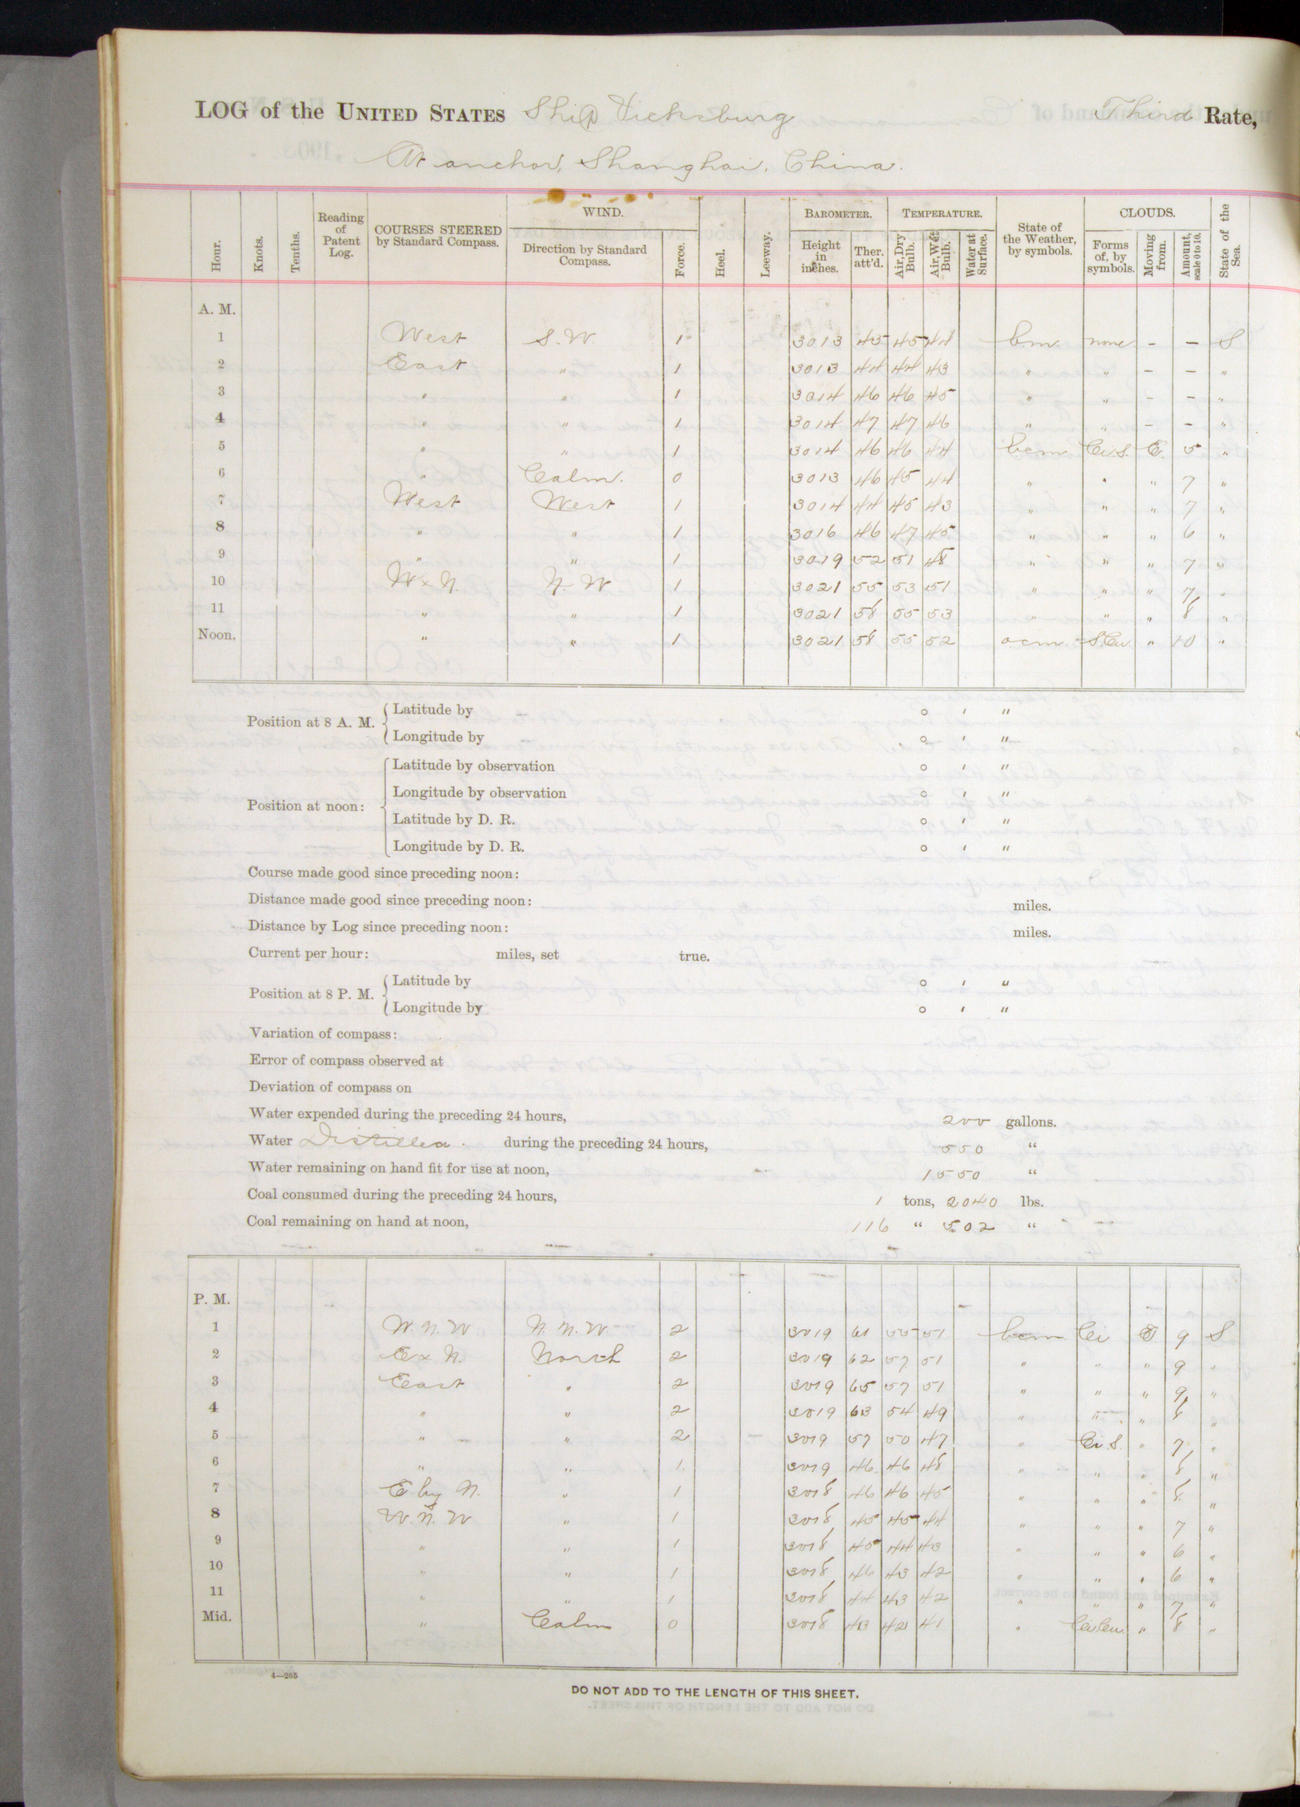 LOG of the UNITED STATES Ship Vicksburg Third Rate,
At anchor, Shanghai, China.
Hour. Knots. Tenths. Reading of Patent Log. COURSES STEERED by Standard Compass. WIND. Direction by Standard Compass. Force. Heel. Leeway. BAROMETER. Height in inches. Ther. att'd. TEMPERATURE. Air, Dry Bulb. Air, Wet Bulb. Water at Surface. State of the Weather, by symbols. CLOUDS. Forms of, by symbols. Moving from. Amount, scale 0 to 10. State of the Sea.
A. M.
1 West S. W 1 3013 45 45 44 bm none - - S
2 East " 1 3013 44 44 43 " " - - "
3 " " 1 3014 46 46 45 " " - - "
4 " " 1 3014 47 47 46 " " - - "
5 " " 1 3014 46 46 44 bcm Ci.S. E. 5 "
6 " Calm. 0 3013 46 45 44 " " " 7 "
7 West West 1 3014 44 45 43 " " " 7 "
8 " " 1 3016 46 47 45 " " " 6 "
9 " " 1 3019 52 51 48 " " " 7 "
10 W x N. N. W 1 3021 55 53 51 " " " 7 "
11 " " 1 3021 58 55 53 " " " 8 "
Noon. " " 1 3021 58 55 52 ocm S.Cu. " 10 "
Position at 8 A. M. Latitude by ° ' "
Longitude by ° ' "
Position at noon: Latitude by observation ° ' "
Longitude by observation ° ' "
Latitude by D. R. ° ' "
Longitude by D. R. ° ' "
Course made good since preceding noon:
Distance made good since preceding noon: miles.
Distance by Log since preceding noon: miles.
Current per hour: miles, set true.
Position at 8 P. M. Latitude by ° ' "
Longitude by ° ' "
Variation of compass:
Error of compass observed at
Deviation of compass on
Water expended during the preceding 24 hours, 200 gallons.
Water Distilled. during the preceding 24 hours, 550 "
Water remaining on hand fit for use at noon, 1550 "
Coal consumed during the preceding 24 hours, 1 tons, 2040 lbs.
Coal remaining on hand at noon, 116 " 502 "
P. M.
1 W. N. W N. N. W 2 3019 61 55 51 bcm Ci 9 S
2 E x N. North 2 3019 62 57 51 " " " 9 "
3 East " 2 3019 65 57 51 " " " 9 "
4 " " 2 3019 63 54 49 " " " 8 "
5 " " 2 3019 57 50 47 " Ci.S. " 7 "
6 " " 1 3019 46 46 48 " " " 8 "
7 E by N. " 1 3018 46 46 45 " " " 8 "
8 W. N. W " 1 3018 45 45 44 " " " 7 "
9 " " 1 3018 45 44 43 " " " 6 "
10 " " 1 3018 46 43 42 " " " 6 "
11 " " 1 3018 44 43 42 " " " 7 "
Mid. " Calm 0 3018 43 42 41 " Ci.Cu. " 8 "
4—265
DO NOT ADD TO THE LENGTH OF THIS SHEET.